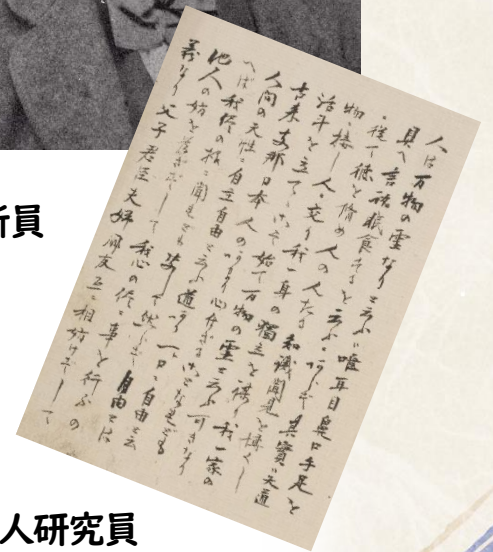 人は万物の霊なりと云ふハ唯耳目鼻口手足を
具へ言語眠食するを云ふニあらず其實ハ天道
ニ従て徳を脩め人の人たる知識聞見を博くし
物ニ接し人ニ交り我一身の獨立を謀り我一家の
活計を立てゝこそ始て万物の霊と云ふ可きなり
古来支那日本人のあまり心付かざることなれども
人間の天性ニ自主自由と云ふ道あり一ト口ニ自由と云
へば我侭の様ニ聞ゆれども決して然らず自由とは
他人の妨を為さずして我心の侭ニ事を行ふの
義なり父子君臣夫婦朋友互ニ相妨げずして
員
人研究員